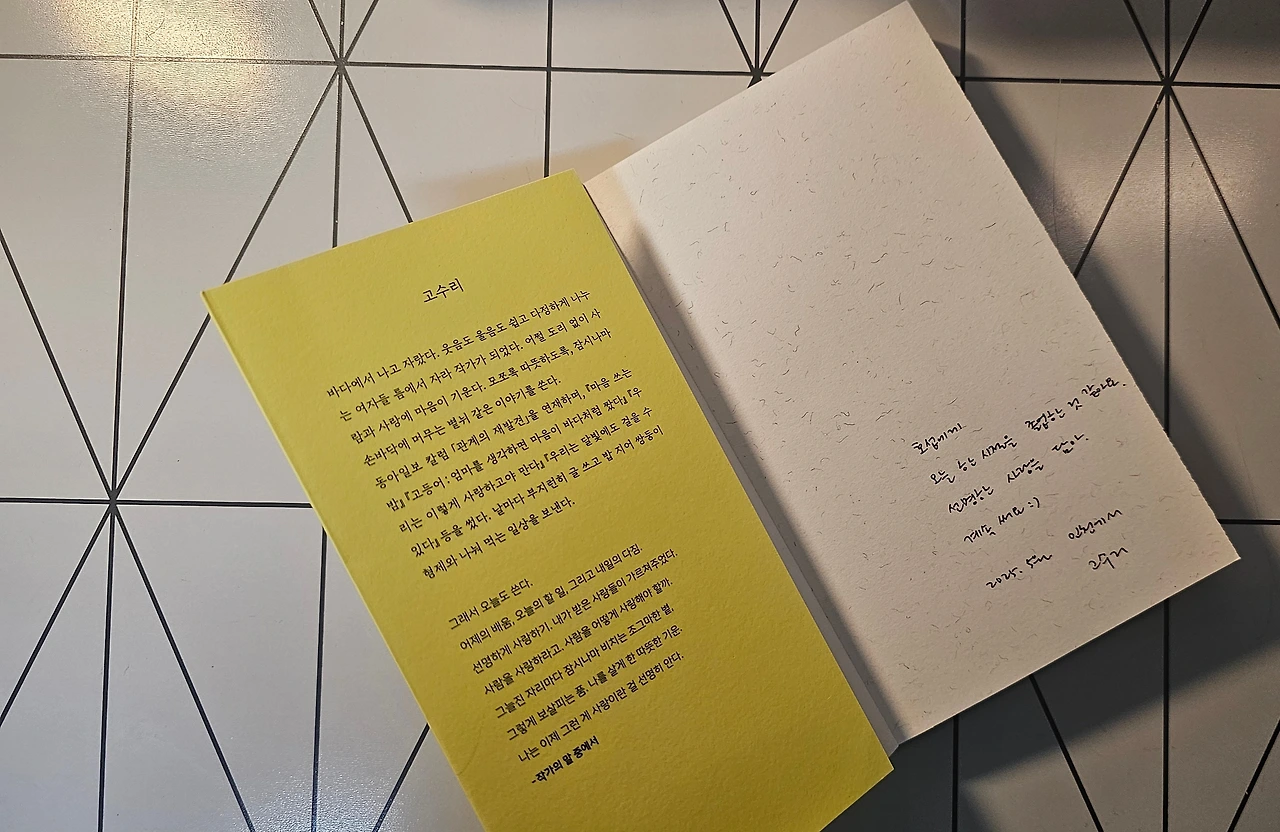 고수리
바다에서 나고 자랐다. 웃음도 울음도 쉽고 다정하게 나누
는 여자들 틈에서 자라 작가가 되었다. 어쩔 도리 없이 사
람과 사랑에 마음이 기운다. 모쪼록 따뜻하도록, 잠시나마
손바닥에 머무는 볕뉘 같은 이야기를 쓴다.
동아일보 칼럼 「관계의 재발견」을 연재하며, 『마음 쓰는
밤』 『고등어 : 엄마를 생각하면 마음이 바다처럼 짰다』 『우
리는 이렇게 사랑하고야 만다』 『우리는 달빛에도 걸을 수
있다』 등을 썼다. 날마다 부지런히 글 쓰고 밥 지어 쌍둥이
형제와 나눠 먹는 일상을 보낸다.
그래서 오늘도 쓴다.
어제의 배움, 오늘의 할 일, 그리고 내일의 다짐.
선명하게 사랑하기. 내가 받은 사랑들이 가르쳐주었다.
사람을 사랑하라고. 사람을 어떻게 사랑해야 할까.
그늘진 자리마다 잠시나마 비치는 조그마한 볕,
그렇게 보살피는 품, 나를 살게 한 따뜻한 기운.
나는 이제 그런 게 사랑이란 걸 선명히 안다.
-작가의 말 중에서
오늘 쓰는 시절은 것 같아요.
선명한 사랑을 담아.
계속 써요 :)
2025. 5
고수리